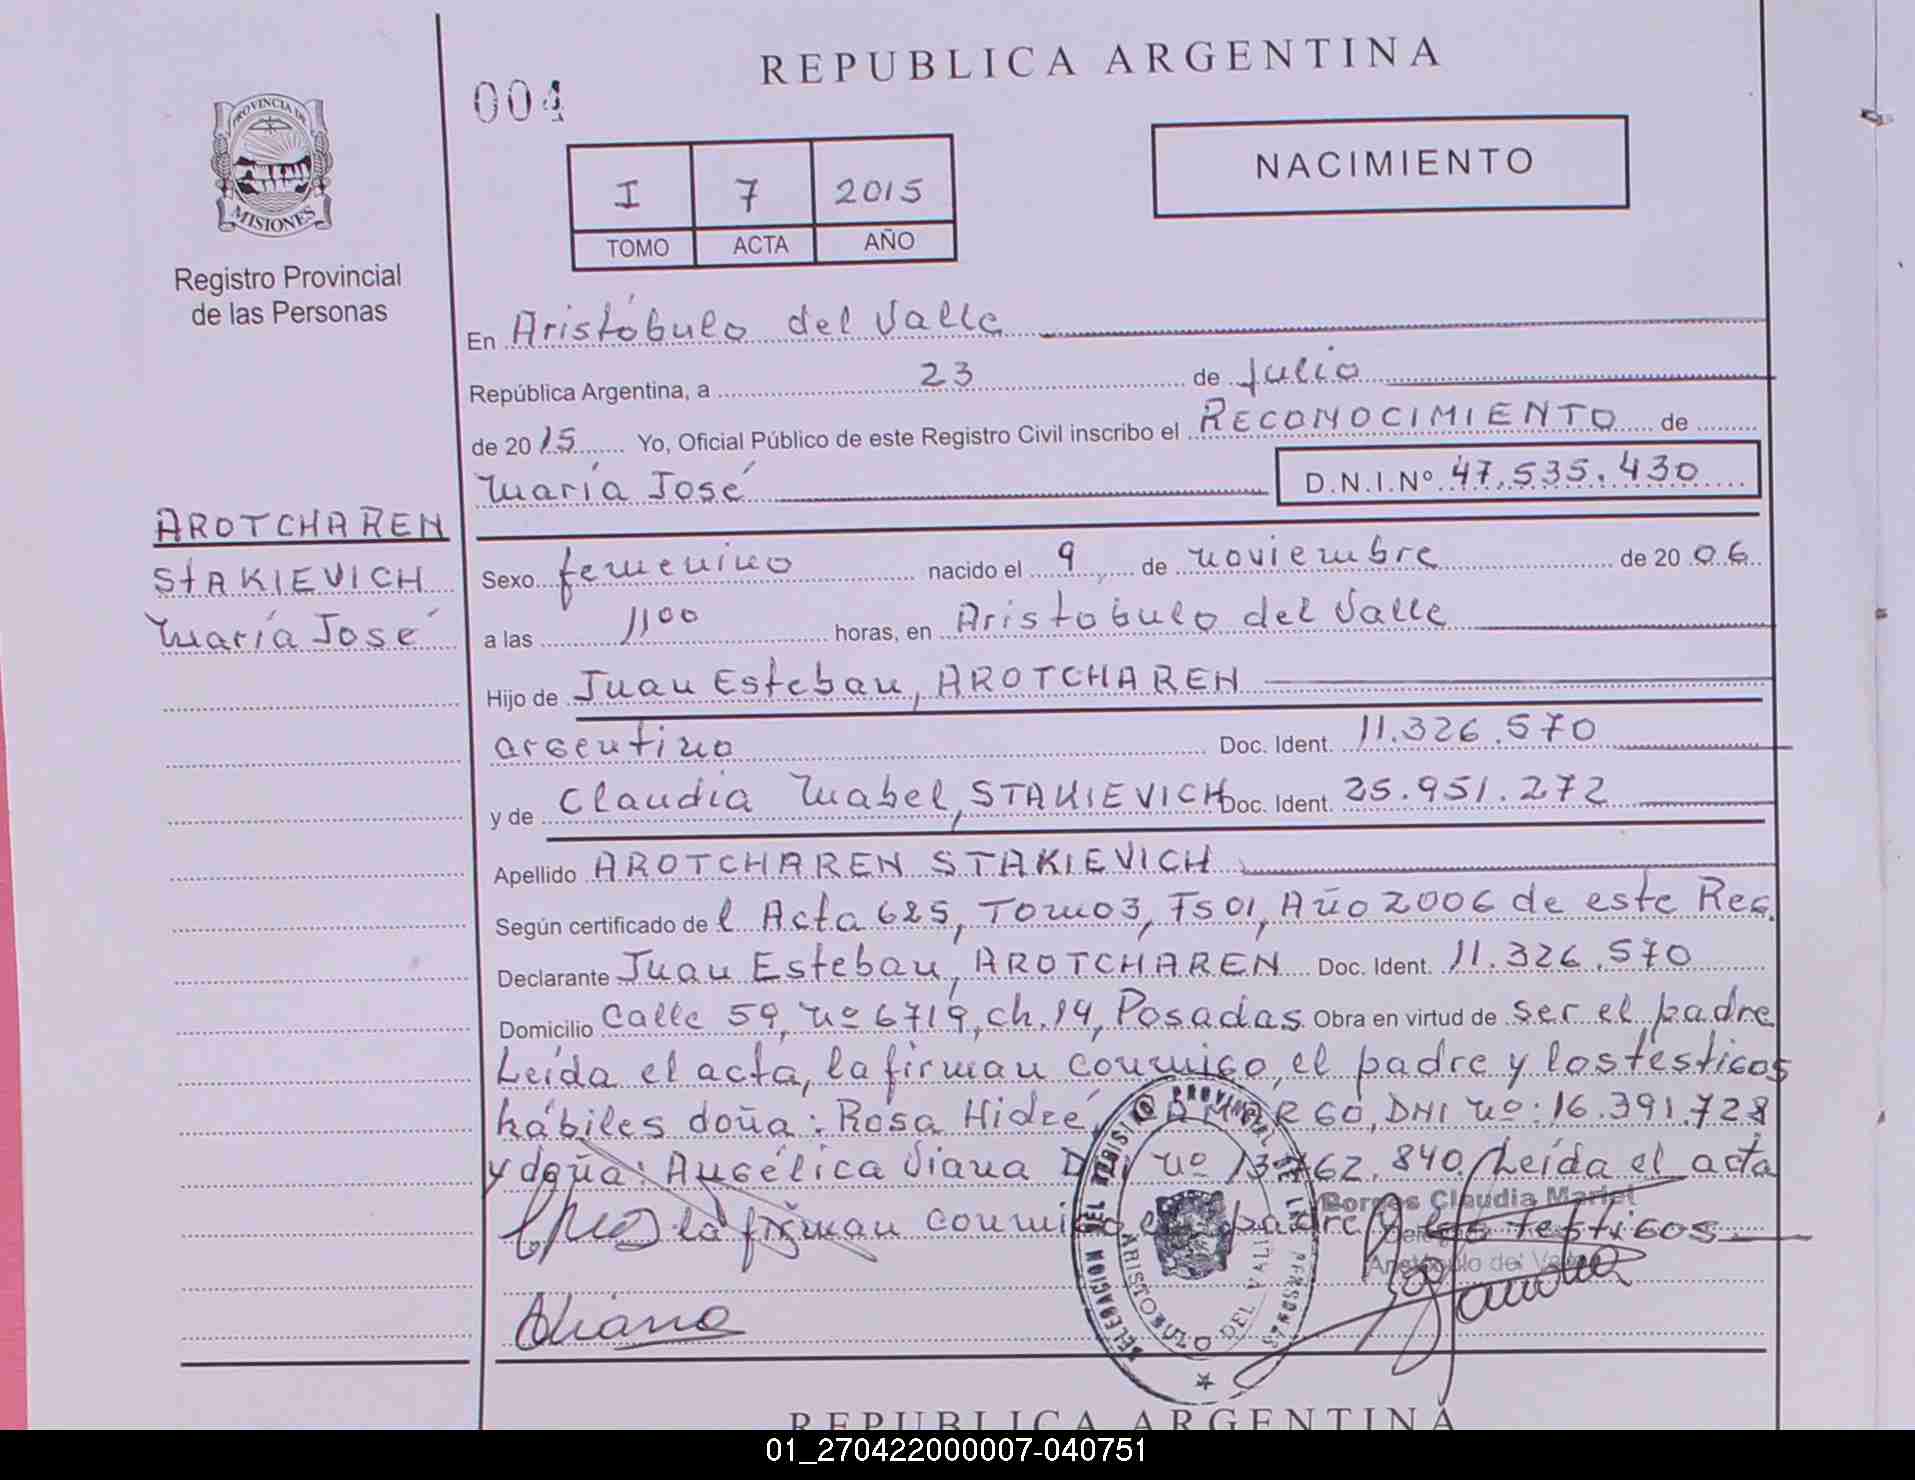 REPUBLICA ARGENTINA
004
PROVINCIA DE
MISIONES
Registro Provincial
de las Personas
I 7 2015
TOMO ACTA AÑO
NACIMIENTO
En Aristóbulo del Valle
República Argentina, a 23 de Julio
de 2015 Yo, Oficial Público de este Registro Civil inscribo el RECONOCIMIENTO de
María José D.N.I.Nº 47.535.430
AROTCHAREN
STAKIEVICH
María José
Sexo femenino nacido el 9 de noviembre de 2006
a las 1100 horas, en Aristóbulo del Valle
Hijo de Juan Esteban, AROTCHAREN
argentino Doc. Ident. 11.326.570
y de Claudia Mabel, STAKIEVICH Doc. Ident. 25.951.272
Apellido AROTCHAREN STAKIEVICH
Según certificado del Acta 625, Tomo 3, Fs 01, Año 2006 de este Reg.
Declarante Juan Esteban, AROTCHAREN Doc. Ident. 11.326.570
Domicilio Calle 59, nº 6719, ch. 14, Posadas Obra en virtud de ser el padre
Leída el acta, la firman conmigo, el padre y los testigos
hábiles doña: Rosa DNI nº: 16.391.728
y doña: Angélica Viana nº 840. Leída el acta
la firman conmigo el padre y los testigos
Borges Claudia Mariel
Aristóbulo del Valle
DELEGACION DEL REGISTRO PROVINCIAL DE LAS PERSONAS
ARISTOBULO DEL VALLE
AViana
REPUBLICA ARGENTINA
01_270422000007-040751